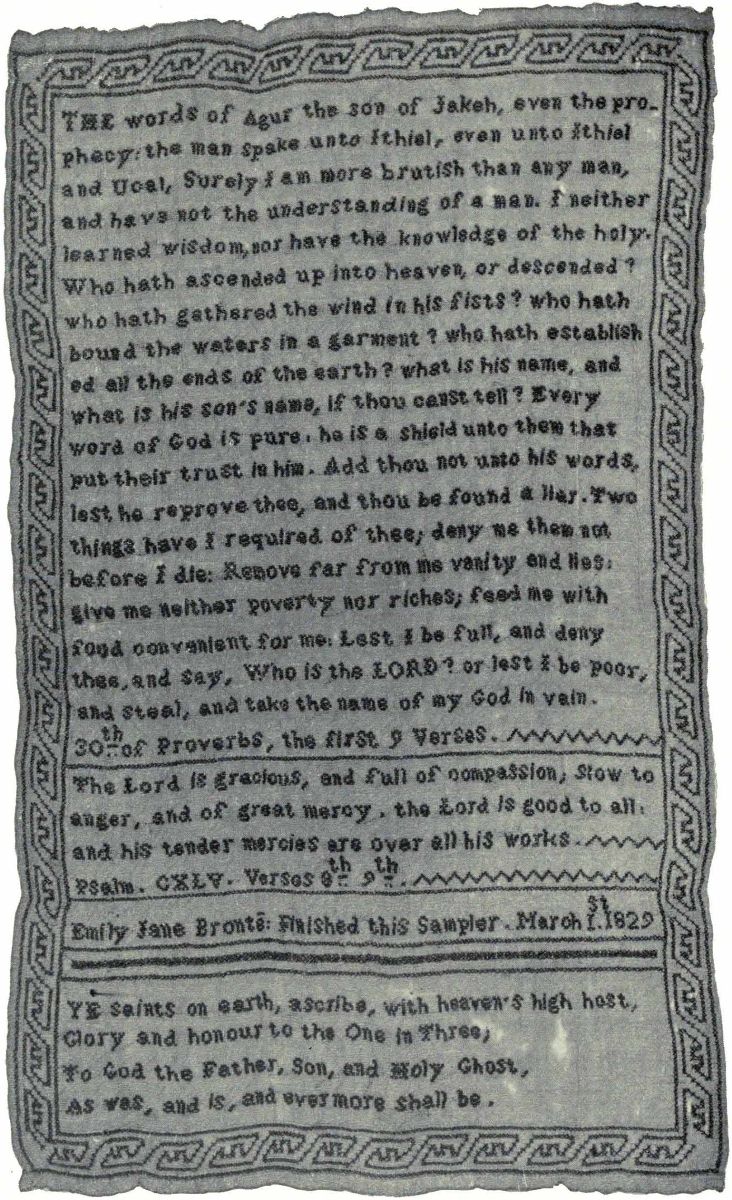 THE words of Agur the son of Jakeh, even the pro-
phecy: the man spake unto Ithiel, even unto Ithiel
and Ucal, Surely I am more brutish than any man,
and have not the understanding of a man. I neither
learned wisdom, nor have the knowledge of the holy.
Who hath ascended up into heaven, or descended?
who hath gathered the wind in his fists? who hath
bound the waters in a garment? who hath establish
ed all the ends of the earth? what is his name, and
what is his son's name, if thou canst tell? Every
word of God is pure: he is a shield unto them that
put their trust in him. Add thou not unto his words,
lest he reprove thee, and thou be found a liar. Two
things have I required of thee; deny me them not
before I die: Remove far from me vanity and lies:
give me neither poverty nor riches; feed me with
food convenient for me: Lest I be full, and deny
thee, and say, Who is the LORD? or lest I be poor,
and steal, and take the name of my God in vain.
30th of Proverbs, the first 9 Verses.
The Lord is gracious, and full of compassion; slow to
anger, and of great mercy. the Lord is good to all:
and his tender mercies are over all his works.
Psalm. CXLV. Verses 8th 9th.
Emily Jane Brontë: Finished this Sampler. March 1st. 1829
YE saints on earth, ascribe, with heaven's high host,
Glory and honour to the One in Three;
To God the Father, Son, and Holy Ghost,
As was, and is, and evermore shall be.